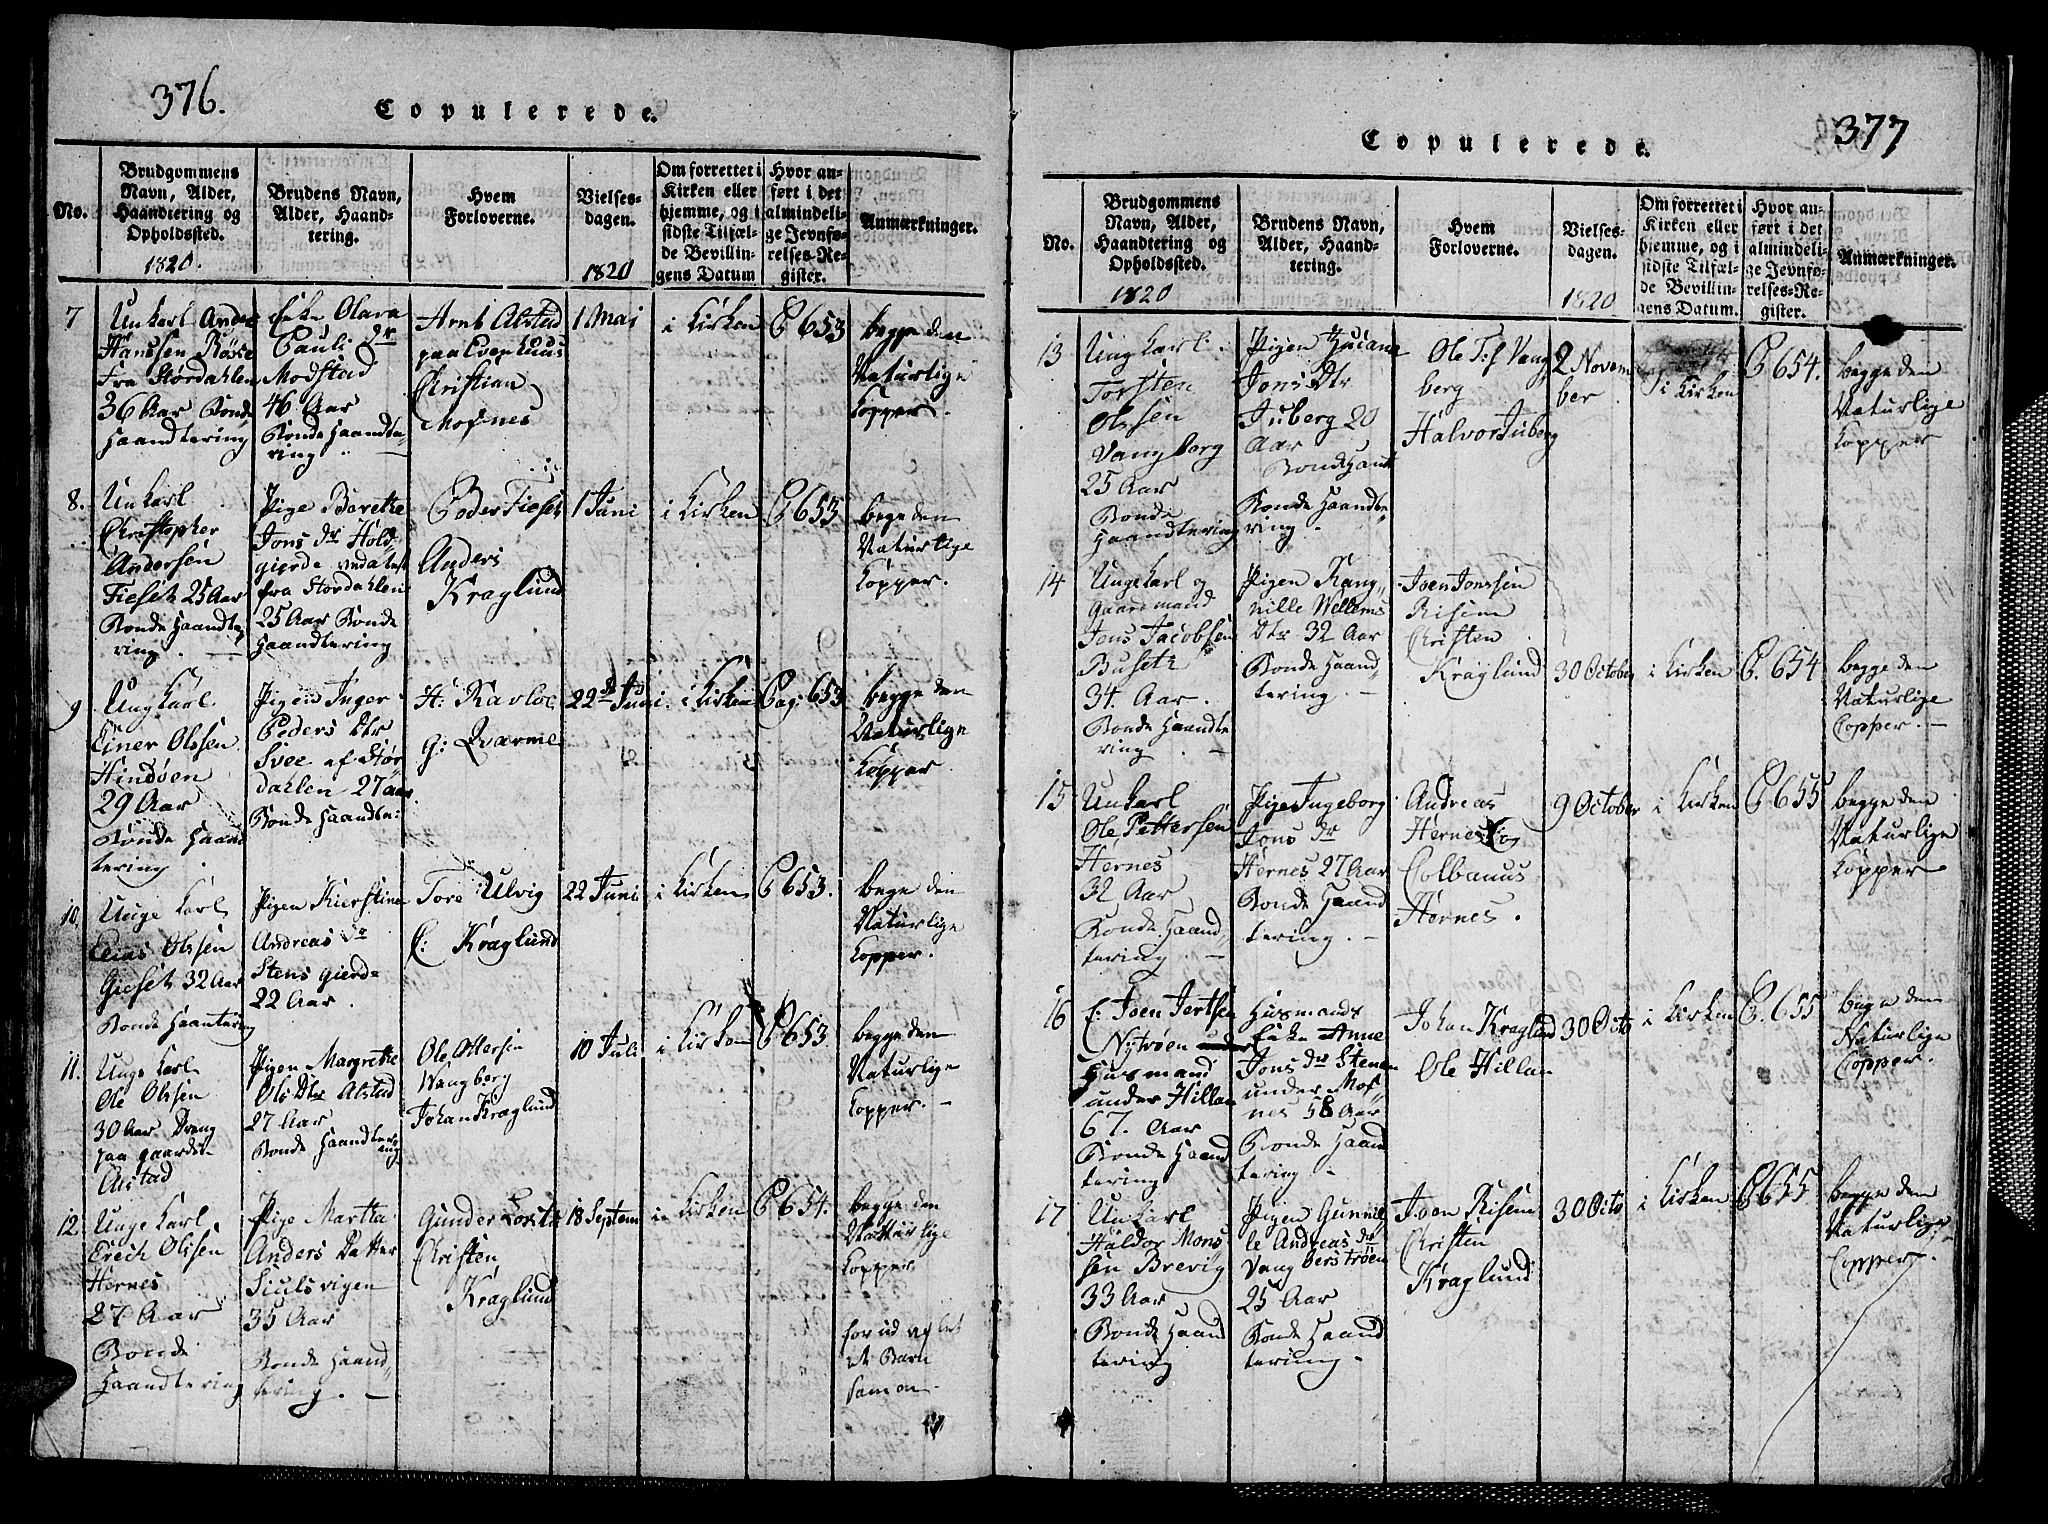 376.
Copulerede.
No.
Brudgommens
Navn, Alder,
Haandtering og
Opholdssted.
1820.
Brudens Navn,
Alder, Haand-
tering.
Hvem
Forloverne.
Vielses-
dagen.
1820
Om forrettet i
Kirken eller
hjemme, og i
sidste Tilfæl-
de Bevillin-
gens Datum
Hvor an-
ført i det
almindeli-
ge Jevnfø-
relses-Re-
gister.
Anmærkninger.
7
Unkarl Ander
Hanssen Røsse
Fra Størdahlen
36 Aar Bonde
Haandtering
Enke Olava
Pauls Dr
Modstad
46 Aar
Bonde Haandte-
ring
Arnt Alstad
paa
Christian
Mosnes
1 Maj
i Kirken
P 653
begge den
Naturlige
Kopper.
8.
Unkarl
Christopher
Andersen
Fieset 25 Aar
Bonde Haandte,
ring.
Pige Berethe
Jons dr Hold-
gierde
fra Stordahlen
25 Aar Bonde
Haandtering
Peder Fieset
Anders
Kraglund
1 Juni
i Kirken
P 653
bege den
Naturlige
Kopper.
9
Ung Karl
Ejner Olssen
Hindøen
29 Aar
Bonde Haand
tering
Pigen Inger
Peders Dtr
Svee af Stør
dahlen 27 aar
Bonde Haandte:
H: Ravloe
G: Qværme
22de Juni
i Kirken
Pag: 653
begge den
Naturlige
Kopper
10.
Unge Karl
Elias Olssen
Gieset 32 Aar
Bonde Haantering
Pigen Kierstine
Andreas dr
Stensgierde
22 Aar.
Tore Ulvig
C: Kraglund
22 Juni
i Kirken
P 653.
bege den
Naturlige
Kopper.
11.
Unge Karl
Ole Olssen
30 Aar Dreng
paa gaarden
Alstad
Pigen Margrethe
Ols Dtr Alstad
27 Aar
Bonde Haandtering
Ole Ottersen
Wangberg
Johan Kraglund
10 Juli
i Kirken
P 653.
begge den
Naturlige
Kopper.
12.
Unge Karl
Erich Olssen
Hernes
27 Aar
Bonde
Haandtering
Pige Martta
Anders Datter
Siulsvigen
35 Aar
Bonde Haand,
tering.
Gunder
Christen
Kraglund
18 Septem
i Kirken
P 654.
begge den
Natturlige
Kopper
for ud avlet
et Barn
samen.
377
Copulerede.
No.
Brudgommens
Navn, Alder,
Haandtering og
Opholdssted.
1820
Brudens Navn,
Alder, Haand-
tering.
Hvem
Forloverne.
Vielses-
dagen.
1820
Om forrettet i
Kirken eller
hjemme, og i
sidste Tilfæl-
de Bevillin-
gens Datum.
Hvor an-
ført i det
almindeli-
ge Jevnfø-
relses-Re-
gister.
Anmærkninger.
13
Ung Karl
Torsten
Olssen
Vangberg
25 Aar
Bonde
Haandtering
Pigen
Jons Dtr
Juberg 20
Aar
Bonde Haant
Bonde Haandte,
ring.
Ole Tis Vang
berg
Halvor Juberg
2 Novem
ber
i Kirken
P 654.
begge den
Naturlige
Kopper
14
Ungekarl og
Gaardmand
Jons Jacobsen
Buseth
34. Aar.
Bonde Haandte
ring.
Pigen Rang,
nille Wellems
Dtr 32 Aar
Bonde Haand,
tering.
Joen Jonssen
Risem
Christen
Kraglund
30 October
i Kirken
P. 654
begge den
Naturlige
Copper.
15
Unkarl
Ole Pettersen
Hernes
32 Aar
Bonde Haand,
tering.
Pige Ingeborg
Jons dr
Hernes 27 Aar
Bonde Haand
tering.
Andreas
Hernes og
Colbanus
Hernes.
9 October
i Kirken
P 655
begge den
Naturlige
Kopper
16
E: Joen Jertsen
Nytrøen
Husmand
under Hillan
67. Aar
Bonde Haand
tering
Husmands
Enke Anne
Jons dr Stenen
under Mos
nes 58 Aar
Bonde Haand
tering
Johan Kraglund
Ole Hillan
30 Octo
i Kirken
P. 655
bege den
Naturlige
Copper.
17
Unkarl
Haldor Mons
sen Brevig
33 Aar
Bonde Haand
tering
Pigen Gunnil
le Andreas dr
Vangberstrøen
25 Aar
Bonde Haand
tering.
Joen Risem
Christen
Kraglund
30 Octo
i Kirken
P 655
begge den
Naturlige
Copper.